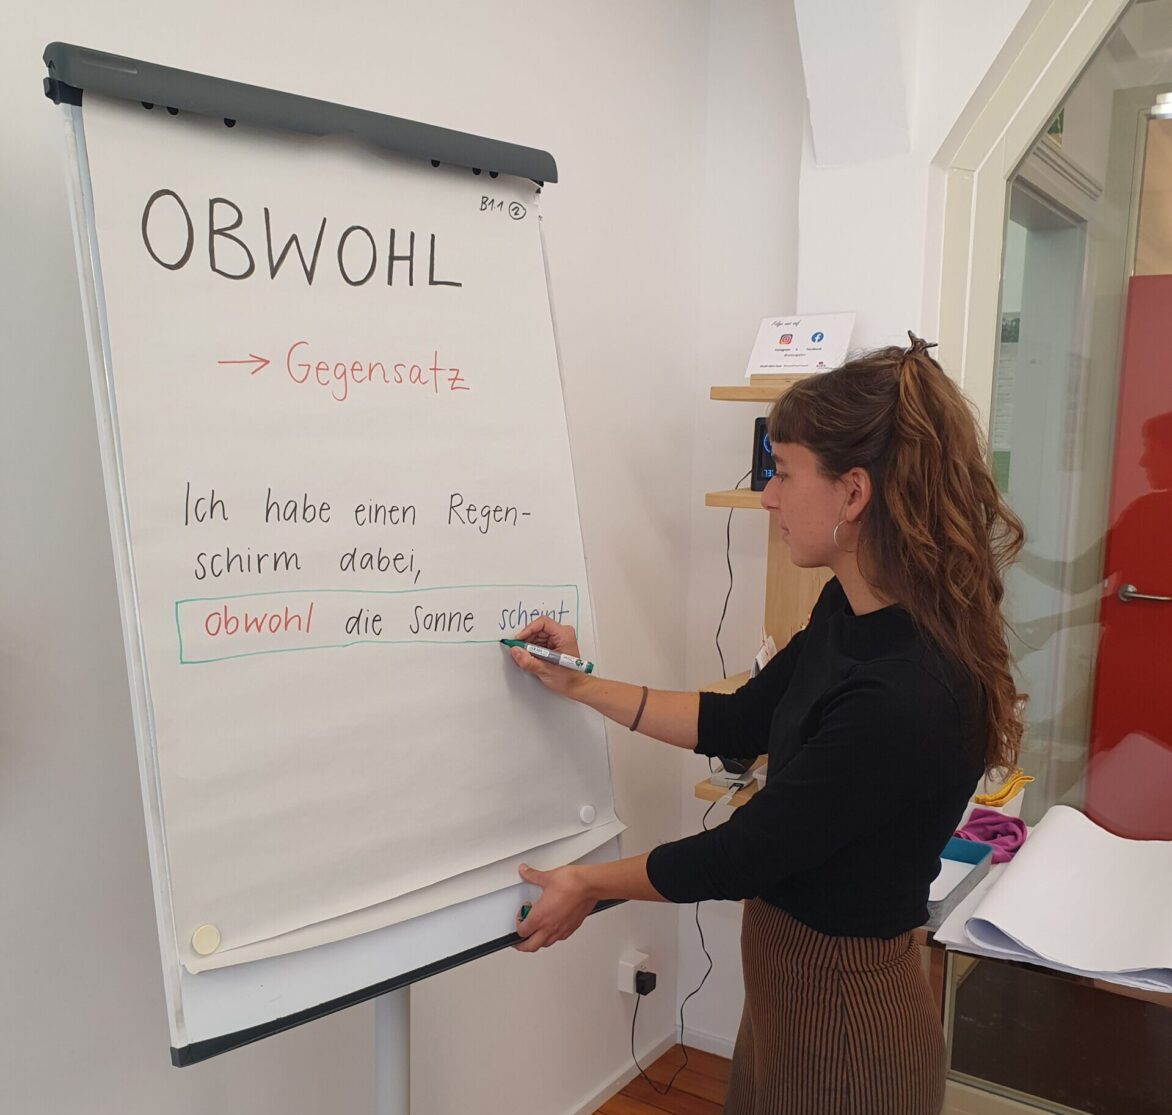 B1.1 ②
OBWOHL
→ Gegensatz
Ich habe einen Regen-
schirm dabei,
obwohl die Sonne scheint
Folge uns auf
Instagram & Facebook